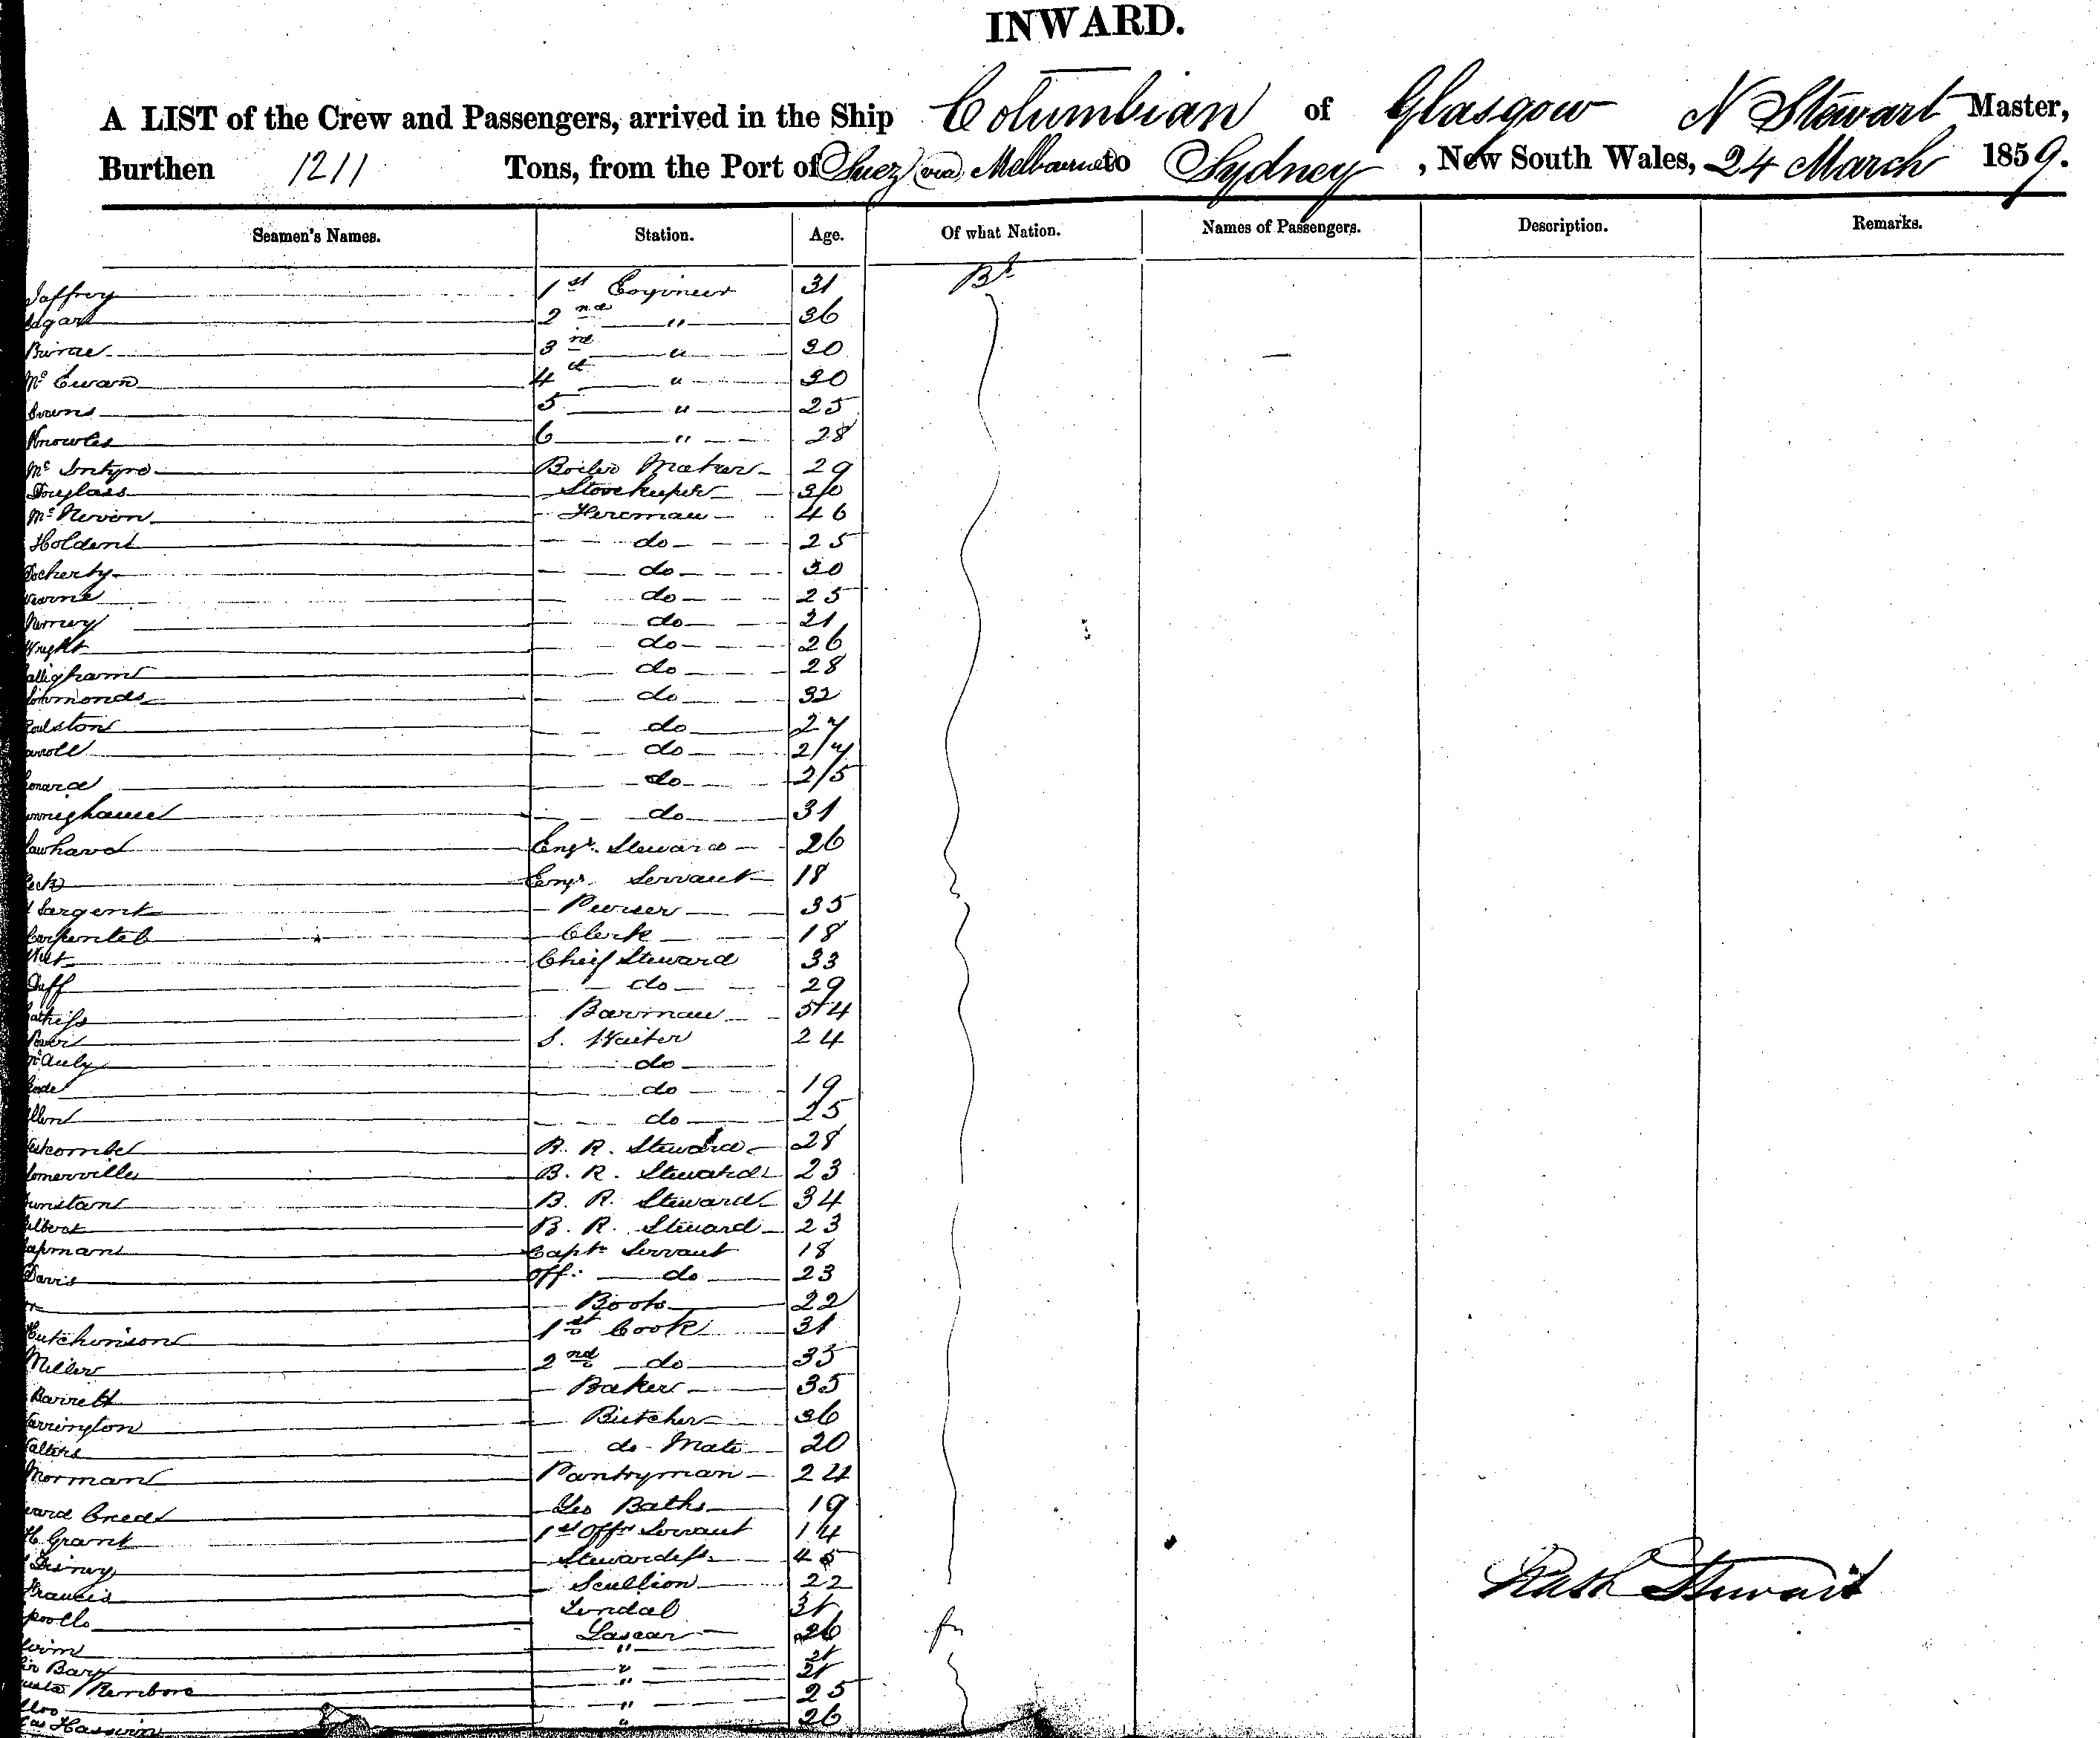 INWARD.
A LIST of the Crew and Passengers, arrived in the Ship Columbian of Glasgow N Stewart Master,
Burthen 1211 Tons, from the Port of Suez via Melbourne to Sydney, New South Wales, 24 March 1859.
Seamen's Names. Station. Age. Of what Nation. Names of Passengers. Description. Remarks.
Jaffrey 1st Engineer 31 Bh
dgar 2nd " 36
Birnie 3rd " 30
McEwan 4th " 30
5 " 25
Knowles 6 " 28
McIntyre Boiler Maker 29
Douglass Storekeeper 30
McNiven Fireman 46
Holden do 25
Docherty do 30
earne do 25
do 21
Wright do 26
allingham do 28
immonds do 32
oulston do 27
arroll do 27
eonard do 25
unninghame do 31
awhard Engr. Steward 26
eck Engr. Servant 18
Sargent Purser 35
Carpenter Clerk 18
Chief Steward 33
Duff do 29
Barman 54
S. Waiter 24
McAuly do
do 19
llen do 25
utcombe R. R. Steward 28
omerville B. R. Steward 23
unstan B. R. Steward 34
ilbert B. R. Steward 23
apman Capts Servant 18
Davis Off: do 23
Boots 22
Hutchinson 1st Cook 31
Miller 2nd do 35
Barrett Baker 35
arrington Butcher 36
alters do Mate 20
Morman Pantryman 24
ward Creed Geo Baths 19
H. Grant 1st Offr Servant 14
Disney Stewardess 45
Francis Scullion 22
Tindal 31
Lascar 26
" 21
Bary " 21
" 25
Hassein " 26
Stewart